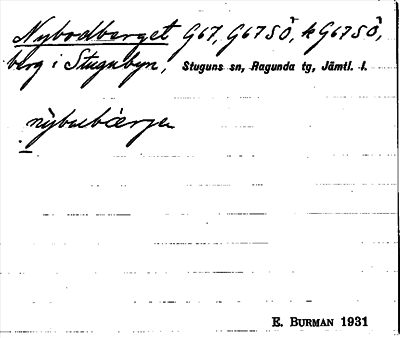 Nybodberget G67, G67SÖ, kG67SÖ,
berg i Stugubyn, Stuguns sn, Ragunda tg, Jämtl. l.
nỳbubærjæ
E. BURMAN 1931